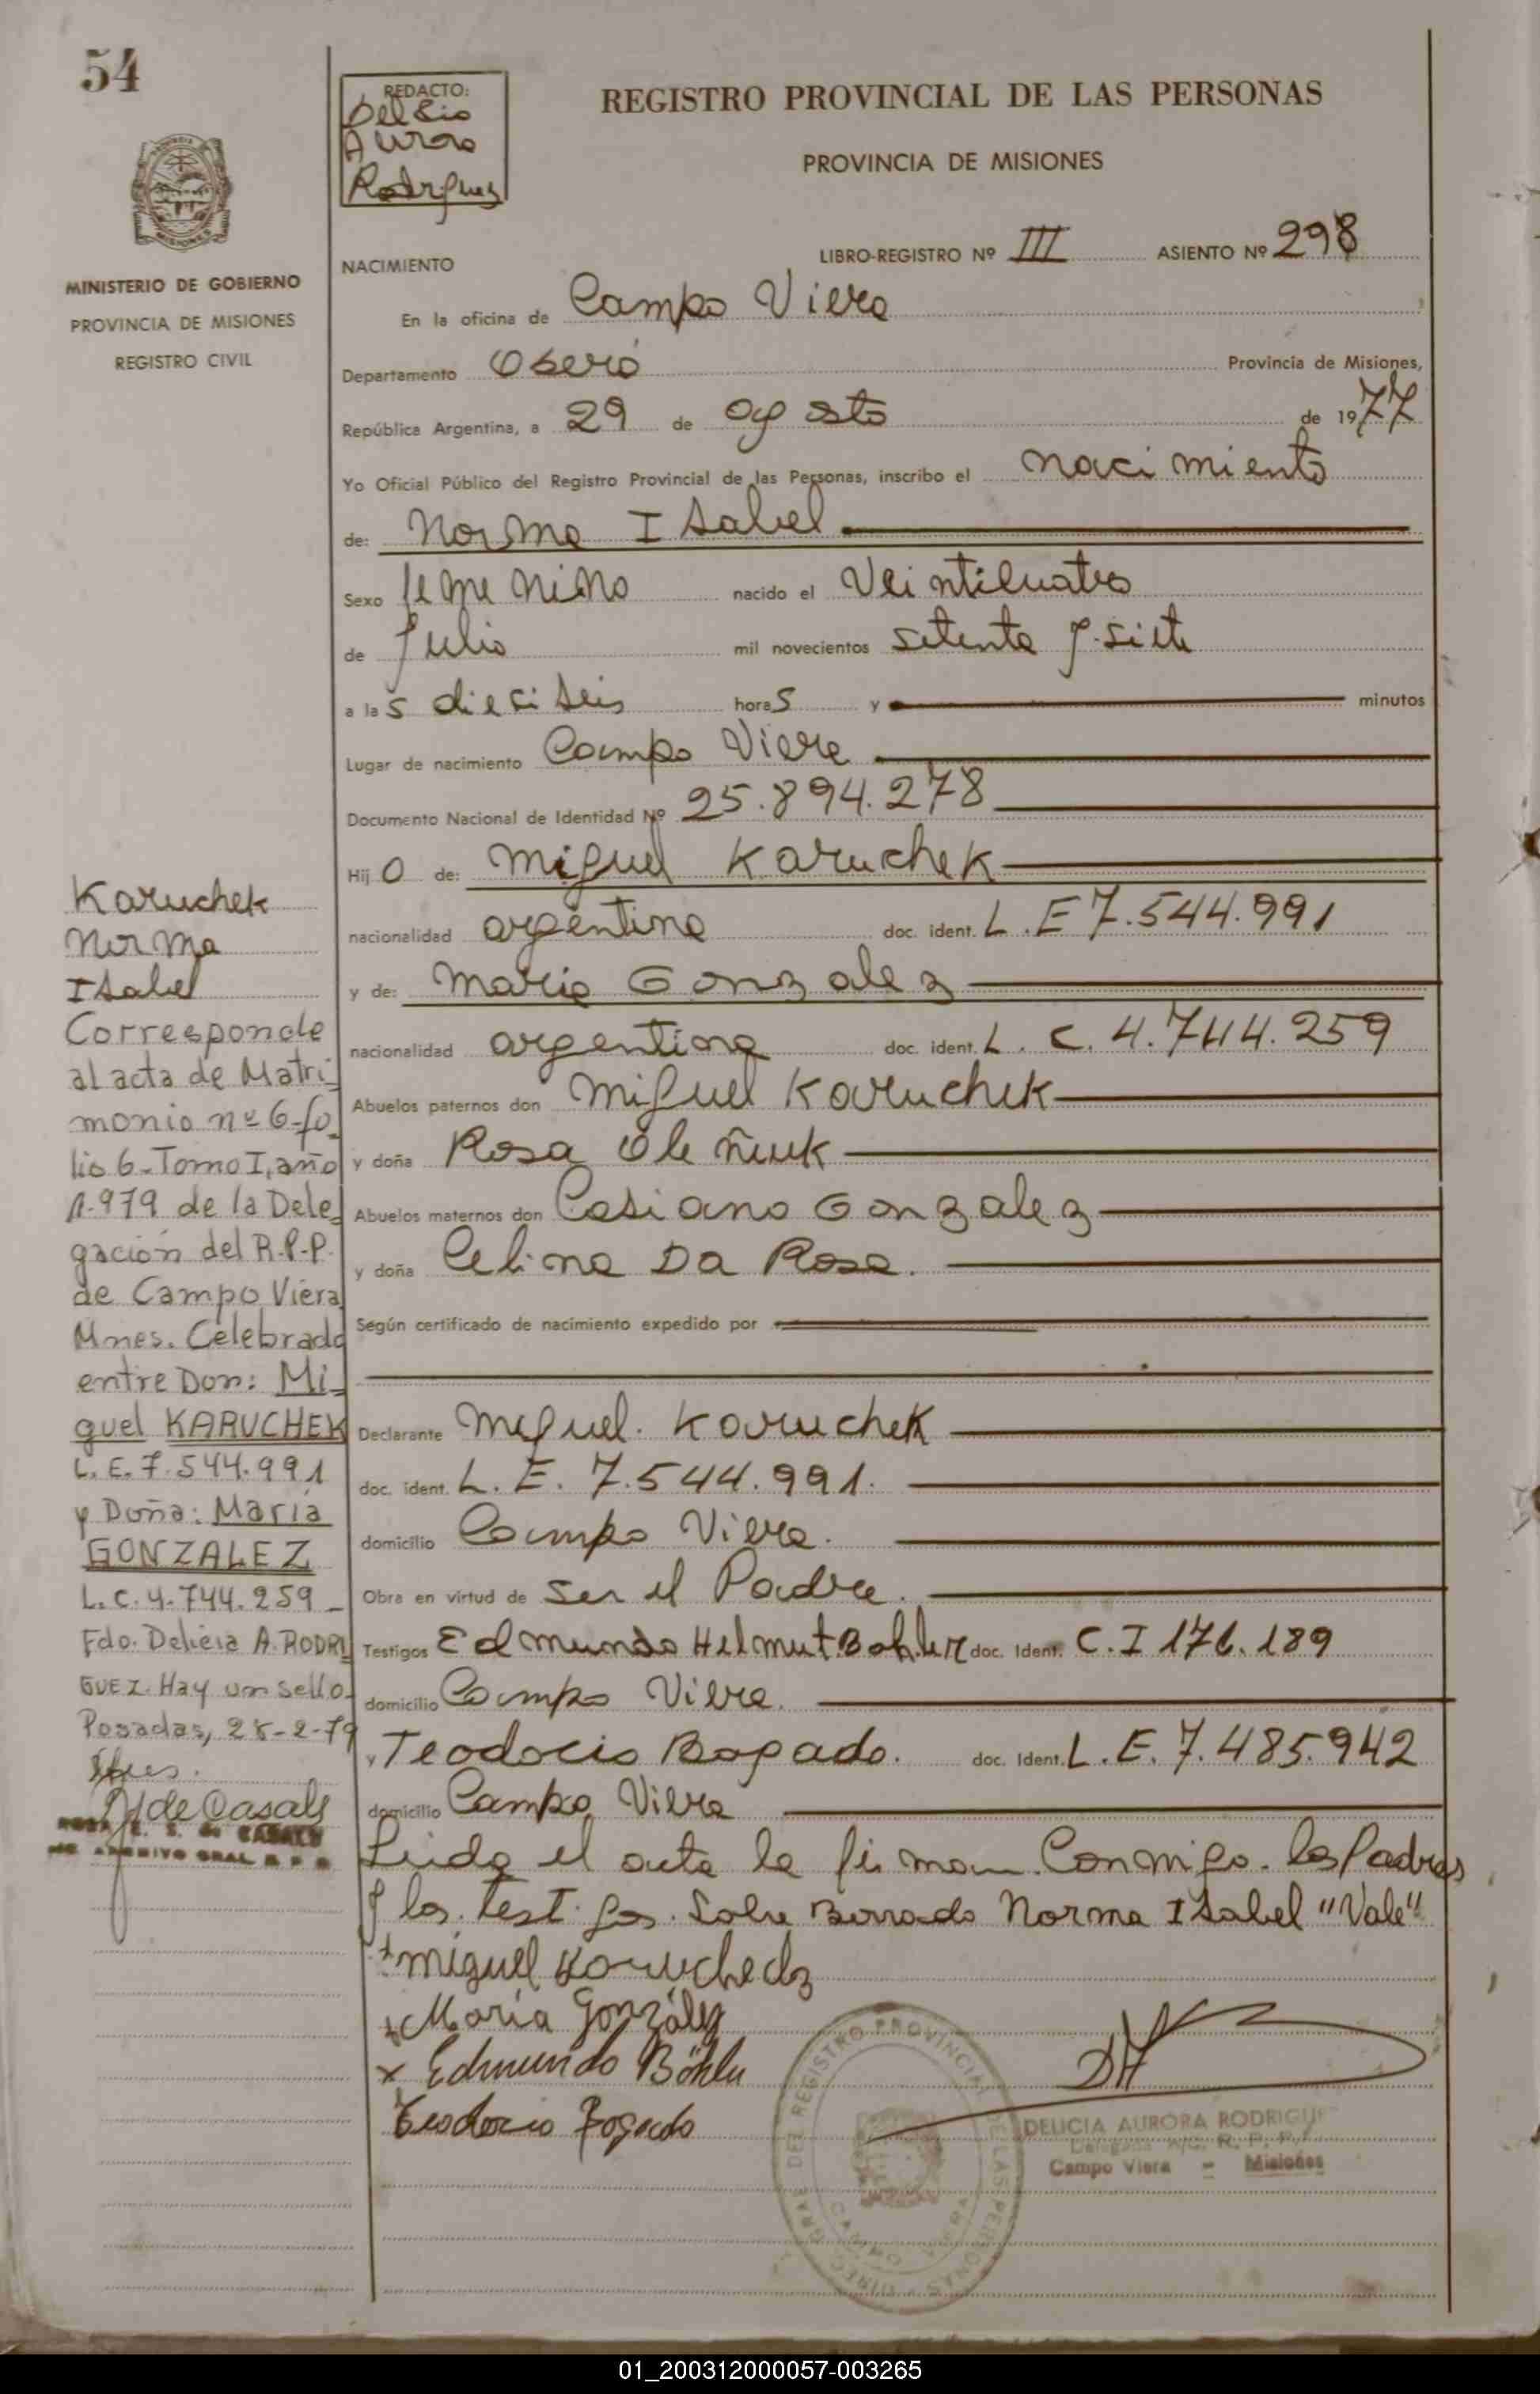 54
REDACTO:
Delicia
Aurora
Rodriguez
REGISTRO PROVINCIAL DE LAS PERSONAS
PROVINCIA DE MISIONES
MISIONES
MINISTERIO DE GOBIERNO
PROVINCIA DE MISIONES
REGISTRO CIVIL
NACIMIENTO
LIBRO-REGISTRO Nº III ASIENTO Nº 298
En la oficina de Campo Viera
Departamento Oberá Provincia de Misiones,
República Argentina, a 29 de agosto de 1977
Yo Oficial Público del Registro Provincial de las Personas, inscribo el nacimiento
de: Norma Isabel
Sexo femenino nacido el Veinticuatro
de Julio mil novecientos setenta y siete
a las dieciseis horas y minutos
Lugar de nacimiento Campo Viera
Documento Nacional de Identidad Nº 25.894.278
Hijo de: Miguel Karuchek
nacionalidad argentina doc. ident. L.E 7.544.991
y de: Maria Gonzalez
nacionalidad argentina doc. ident. L.C. 4.744.259
Abuelos paternos don Miguel Karuchek
y doña Rosa Oleñiuk
Abuelos maternos don Casiano Gonzalez
y doña Celina Da Rosa.
Según certificado de nacimiento expedido por
Declarante Miguel. Karuchek
doc. ident. L.E. 7.544.991.
domicilio Campo Viera.
Obra en virtud de ser el Padre.
Testigos Edmundo Helmut Bohler doc. Ident. C.I 176.189
domicilio Campo Viera.
y Teodocio Bogado. doc. Ident. L.E. 7.485.942
domicilio Campo Viera
Leida el acta la firman Conmigo. los Padres
y los testigos. Sobre Borrado Norma Isabel "Vale"
Miguel
María González
Edmundo Böhler
Teodocio Bogado
DELICIA AURORA RODRIGUE
Campo Viera - Misiones
Karuchek
Norma
Isabel
Corresponde
al acta de Matri-
monio nº 6-fo-
lio 6-Tomo I, año
1.979 de la Dele-
gación del R.P.P.
de Campo Viera
Mnes. Celebrado
entre Don: Mi-
guel KARUCHEK
L.E. 7.544.991
y Doña: María
GONZALEZ
L.C. 4.744.259-
Fdo. Delicia A. RODRI
GUEZ. Hay un sello-
Posadas, 28-2-79
de Casals
01_200312000057-003265